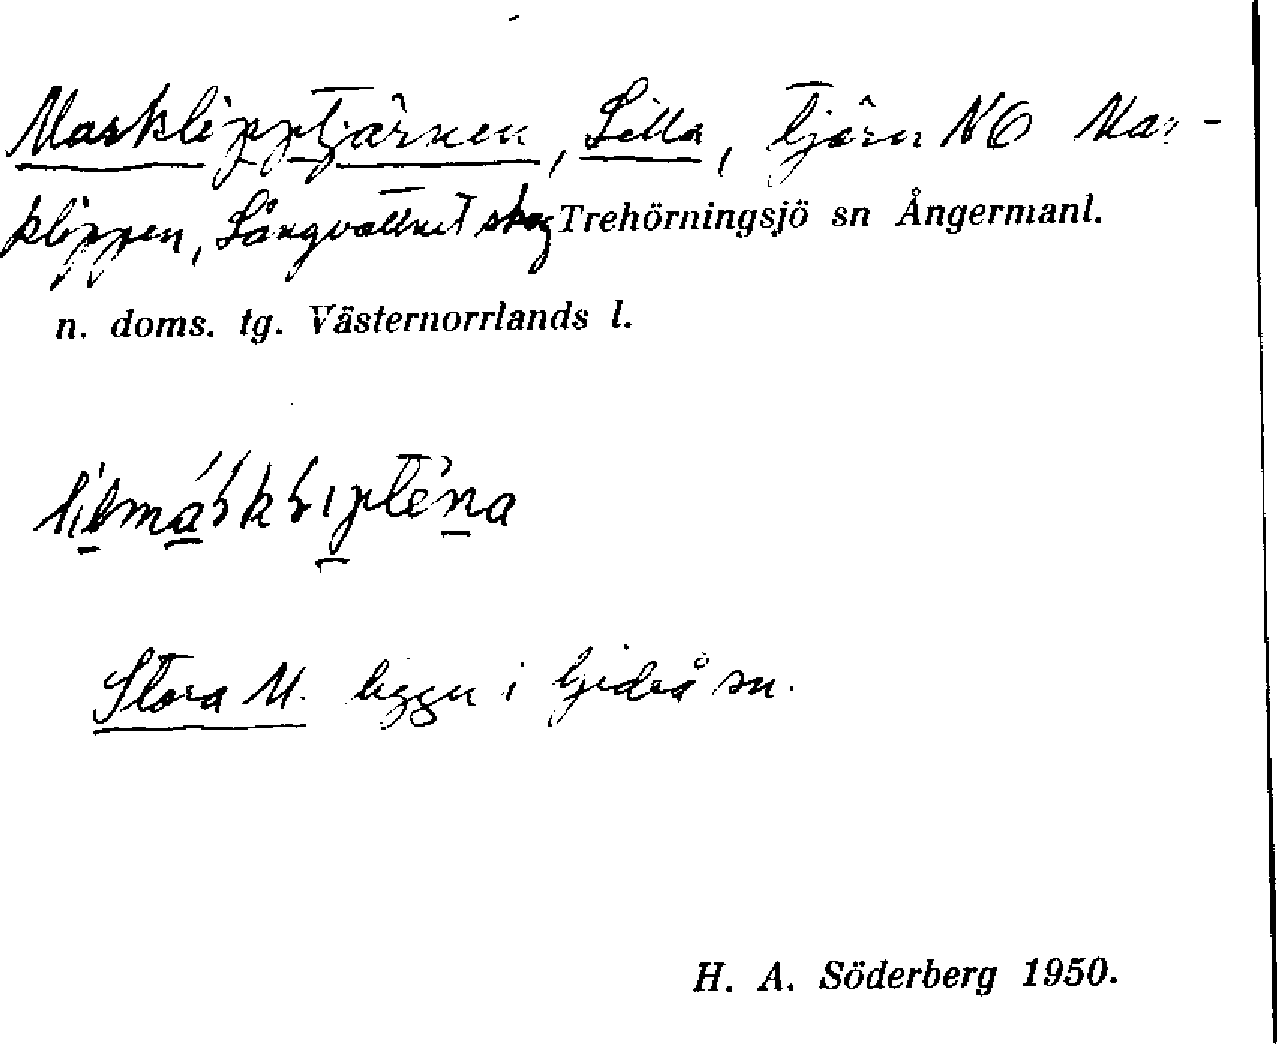 Masklipptjärnen, Lilla, tjärn NO Mas-
klippen, Långvattnet skog Trehörningsjö sn Ångermanl.
n. doms. tg. Västernorrlands l.
Stora M. ligger i Gideå sn.
H. A. Söderberg 1950.